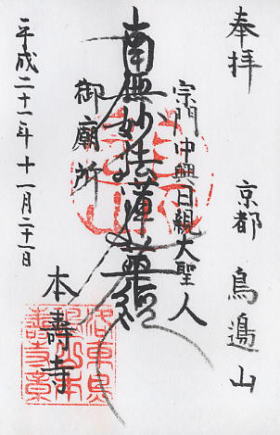 奉拝
京都 鳥邉山
宗門中興日親大聖人
南無妙法蓮華経
御廟所
本壽寺
平成二十一年十一月二十一日